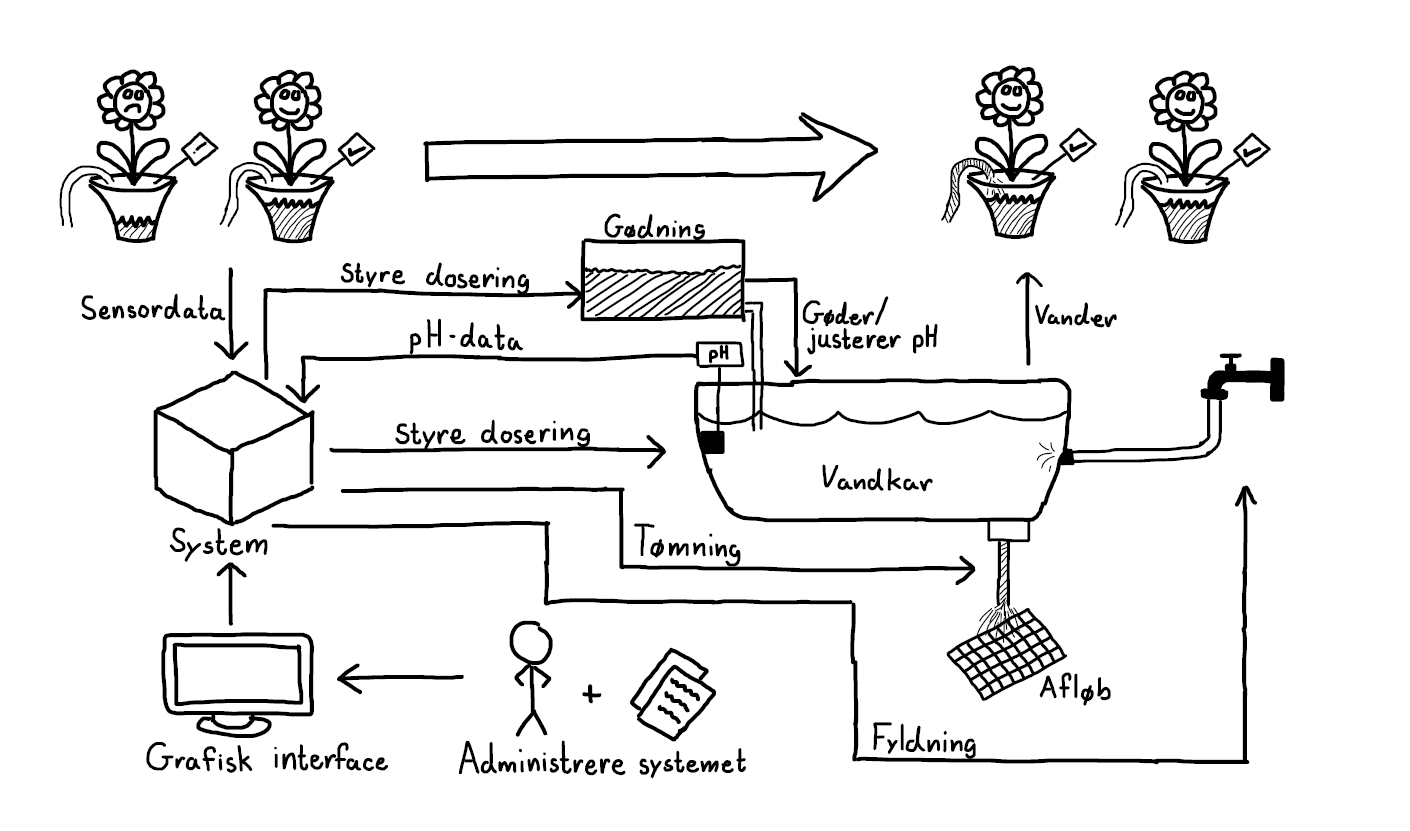 Gødning
Styre dosering
Sensordata
Gøder/
justerer pH
Vander
pH-data
pH
Styre dosering
Vandkar
System
Tømning
Afløb
Fyldning
Grafisk interface
Administrere systemet
+
!